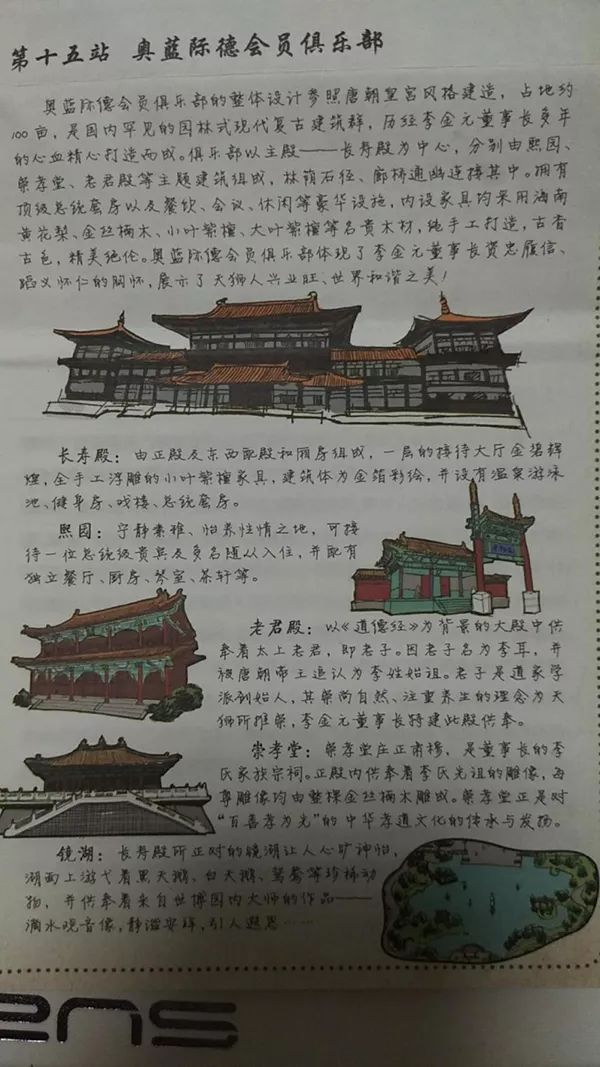 第十五站 奥蓝际德会员俱乐部
奥蓝际德会员俱乐部的整体设计参照唐朝皇宫风格建造，占地约
100亩，是国内罕见的园林式现代复古建筑群，历经李金元董事长多年
的心血精心打造而成。俱乐部以主殿——长寿殿为中心，分别由熙园、
崇孝堂、老君殿等主题建筑组成，林荫石径、廊桥通幽连接其中。拥有
顶级总统套房以及餐饮、会议、休闲等豪华设施，内设家具均采用海南
黄花梨、金丝楠木、小叶紫檀、大叶紫檀等名贵木材，纯手工打造，古香
古色，精美绝伦。奥蓝际德会员俱乐部体现了李金元董事长资忠履信、
蹈义怀仁的胸怀，展示了天狮人兴业旺、世界和谐之美！
长寿殿：由正殿及东西配殿和厢房组成，一层的接待大厅金碧辉
煌，全手工浮雕的小叶紫檀家具，建筑体为金箔彩绘，并设有温泉游泳
池、健身房、戏楼、总统套房。
熙园：宁静素雅、怡养性情之地，可接
待一位总统级贵宾及多名随从入住，并配有
独立餐厅、厨房、琴室、茶轩等。
老君殿：以《道德经》为背景的大殿中供
奉着太上老君，即老子。因老子名为李耳，并
被唐朝帝王追认为李姓始祖。老子是道家学
派创始人，其崇尚自然、注重养生的理念为天
狮所推崇，李金元董事长特建此殿供奉。
崇孝堂：崇孝堂庄正肃穆，是董事长的李
氏家族宗祠。正殿内供奉着李氏先祖的雕像，每
尊雕像均由整棵金丝楠木雕成。崇孝堂正是对
“百善孝为先”的中华孝道文化的传承与发扬。
镜湖：长寿殿所正对的镜湖让人心旷神怡，
湖面上游弋着黑天鹅、白天鹅、鸳鸯等珍稀动
物，并供奉着来自世博园内大师的作品——
滴水观音像，静谧安详，引人遐思……
ens